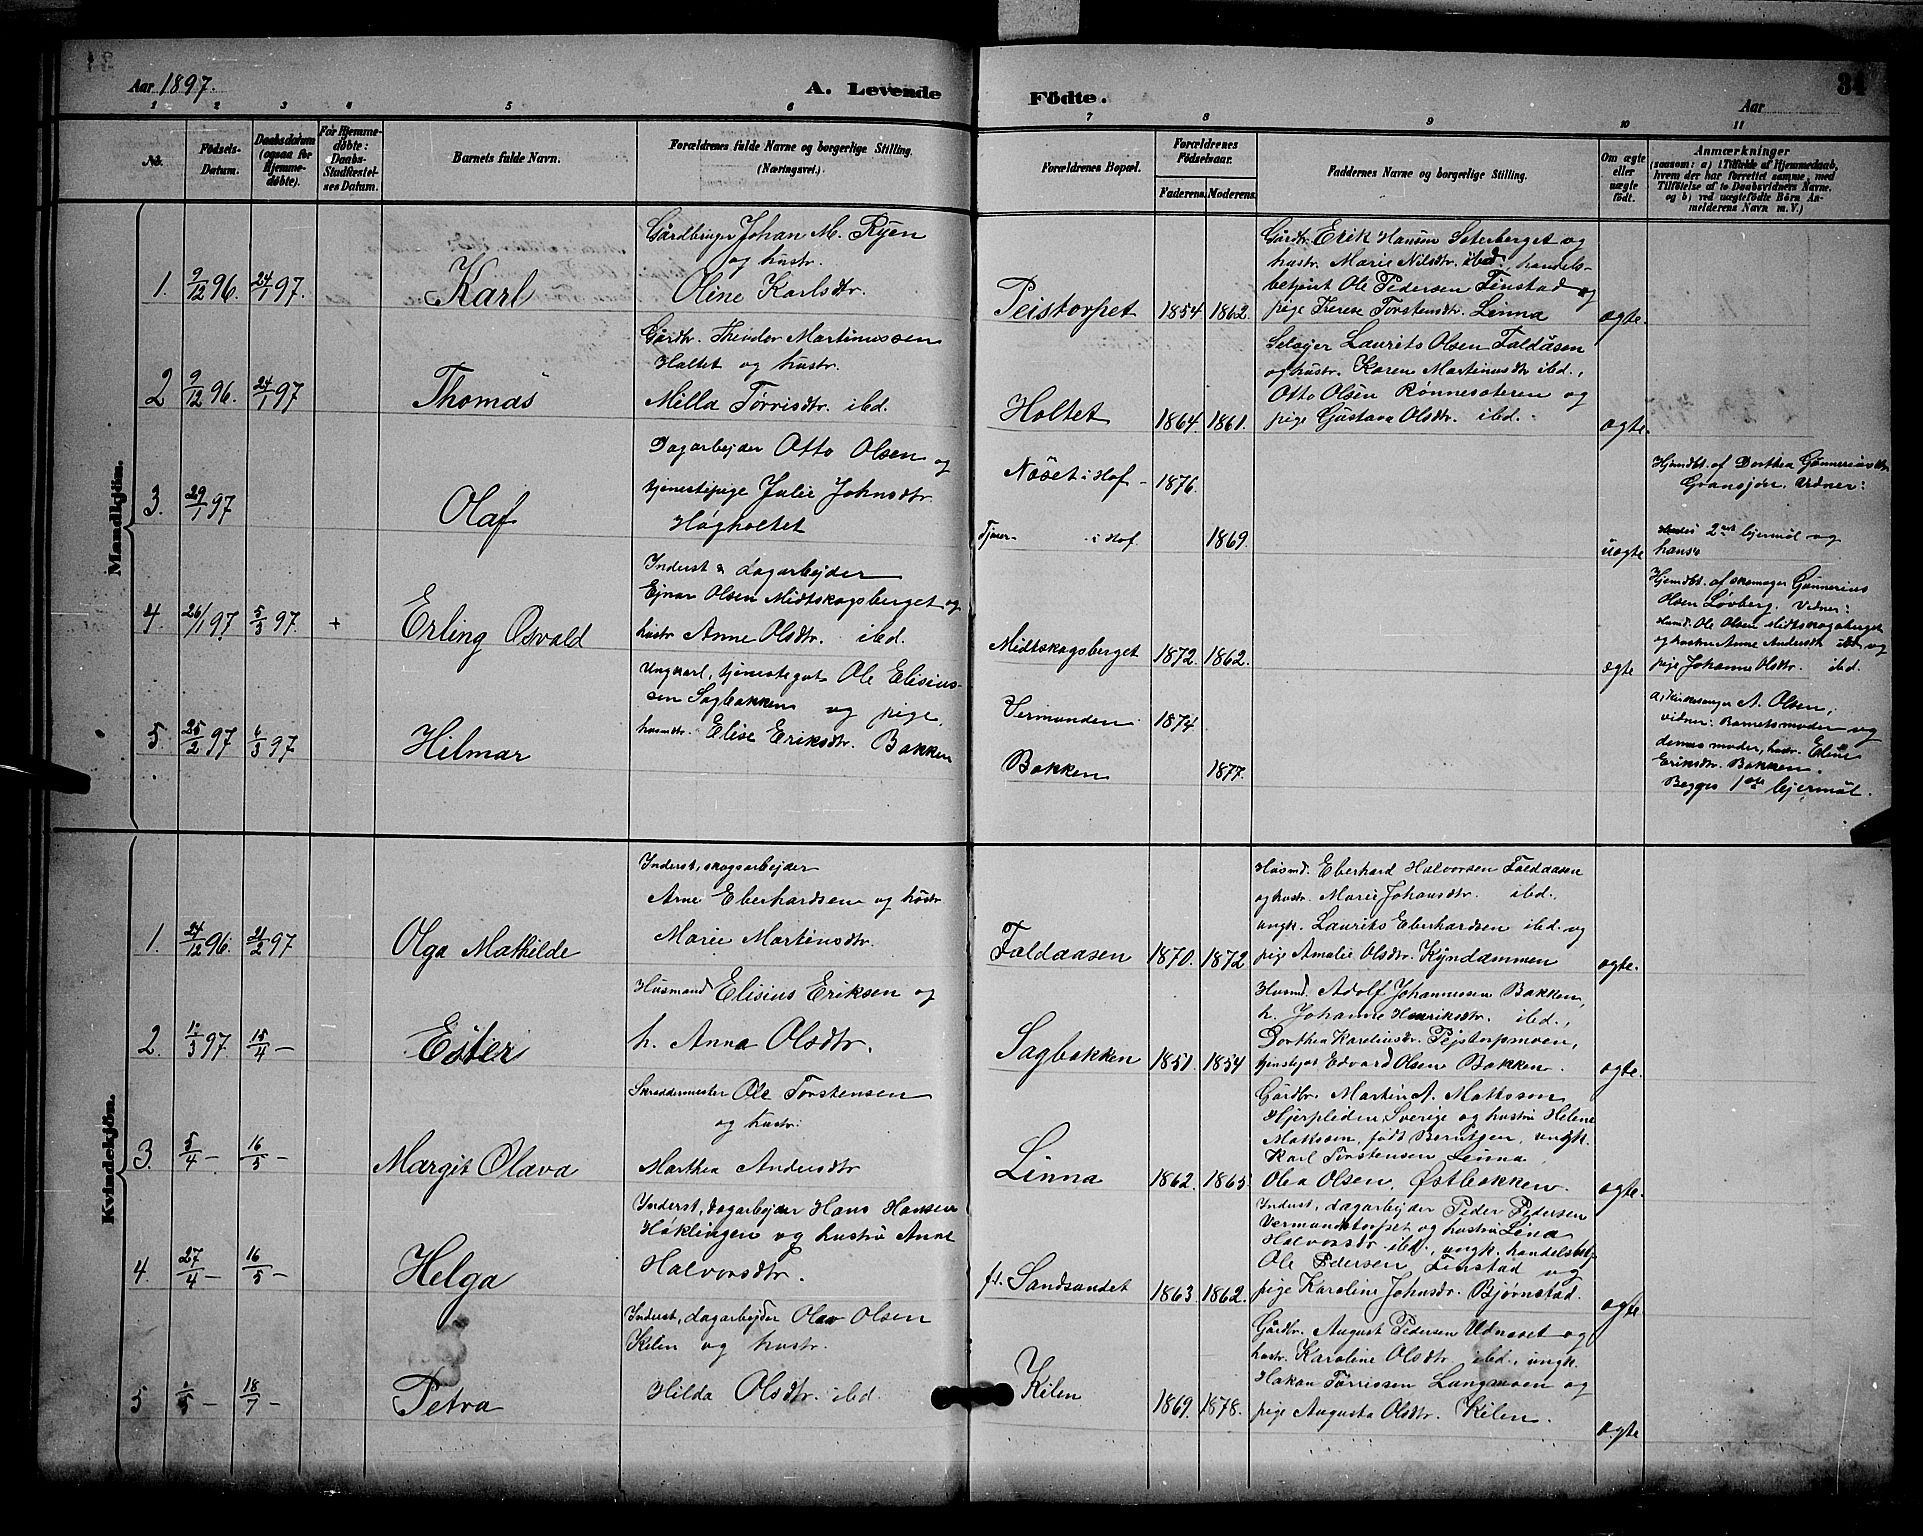 Aar 1897.
A. Levende Födte.
34
Aar
1 2 3 4 5 6 7 8 9 10 11
No.
Födsels-Datum.
Daabsdatum (ogsaa for Hjemme-döbte).
For Hjemme-döbte: Daabs-Stadfæstel-ses Datum.
Barnets fulde Navn.
Forældrenes fulde Navne og borgerlige Stilling. (Næringsvei.)
Forældrenes Bopæl.
Forældrenes Födselsaar.
Faderens. Moderens.
Faddernes Navne og borgerlige Stilling.
Om ægte eller uægte født.
Anmærkninger
(saasom: a) i Tilfælde af Hjemmedaab,
hvem der har forrettet samme, med
Tilføielse af to Daabsvidners Navne,
og b) ved uægtefødte Börn An-
melderens Navn m. V.)
Mandkjön.
1. 9/12 96. 24/1 97. Karl
Gårdbruger Johan M. Ryen
og hustr.
Oline Karlsdtr.
Peistorpet 1854 1862.
Gårdbr. Erik Hansen Sæterberget og
hustr. Marie Nilsdtr. ibd. handels-
betjent Ole Pedersen Finstad og
pige Irene Torstensdtr. Linna
ægte.
2 9/12 96. 24/1 97 Thomas
Gårdbr. Theodor Martinussen
Holtet og hustr.
Milla Tørrisdtr. ibd.
Holtet 1864. 1861.
Selvejer Laurits Olsen Faldåsen
og hustr. Karen Martinusdtr ibd.,
Otto Olsen Rønnesæteren og
pige Gustava Olsdtr. ibd.
ægte.
3. 29/1 97 Olaf
Dagarbejder Otto Olsen og
tjenestepige Julie Johnsdtr
Høgholtet
Nöset i Hof - 1876.
Tjener- i Hof 1869.
uægte
Hjemdbt. af Dorthea Gunneriusdtr
Gransjøn. Vidner:
2det lejermål og
hans
4. 26/1 97 5/3 97. + Erling Osvald
Inderst & Dagarbejder
Ejnar Olsen Midtskogsberget og
hustr. Anne Olsdtr. ibd.
Midtskogsberget 1872. 1862.
ægte
Hjemdbt. af skomager Gunnerius
Olsen Løvberg. Vidner:
Husmd. Ole Olsen Midtskogsberget
og hustru Anne Andersdtr ibd og
pige Johanne Olsdtr. ibd.
5. 25/2 97 6/3 97 Hilmar
Ungkarl, tjenestegut Ole Elisius-
sen Sagbakken og pige,
husmdtr. Elise Eriksdtr. Bakken
Vermunden 1874
Bakken 1877.
a, Kirkesanger A. Olsen,
vidner: Barnets moder og
dennes moder, hustr. Eline
Eriksdtr. Bakken.
Begges 1ste lejermål.
Kvindekjön.
1. 24/12 96. 21/2 97 Olga Mathilde
Inderst, skogsarbejder
Arne Eberhardsen og hustr
Marie Martinsdtr.
Faldaasen 1870. 1872
Husmd. Eberhard Halvorsen Faldaasen
og hustr. Marie Johansdtr. ibd.
ungk. Laurits Eberhardsen ibd. og
pige Amalie Olsdtr. Kyndammen
ægte.
2. 1/3 97. 15/4 — Ester
Husmand Elisius Eriksen og
h. Anna Olsdtr.
Sagbakken 1851. 1854
Husmd. Adolf Johannesen Bakken,
h. Johanne Henriksdtr. ibd.,
Dorthea Kareliusdr. Pejstorpmoen,
tjenstegut Edvard Olsen Bakken.
ægte.
3. 5/4 — 16/5 — Margit Olava
Skræddermester Ole Torstensen
og hustr:
Marthea Andersdtr
Linna 1862. 1865
Gårdbr. Martin A. Mattsson
Hjerpliden, Sverige og hustru Helene
Mattsson, født Berntgen, ungk.
Karl Torstensen Linna,
Olea Olsen, Østbakken.
ægte.
4. 27/4 — 16/5 — Helga
Inderst, Dagarbejder Hans Hansen
Håklingen og hustru Anne
Halvorsdtr.
fr. Sandsandet 1863 1862.
Inderst, dagarbejder Peder Pedersen
Vermundtorpet og hustru Lina
Halvorsdr. ibd., ungk. handelsbetj.
Ole Pedersen Finstad og
pige Karoline Johnsdr. Bjørnstad.
ægte
5 /5 — 18/7 — Petra
Inderst, dagarbejder Olav Olsen
Kilen og hustr.
Hilda Olsdtr. ibd.
Kilen 1869. 1878.
Gårdbr. August Pedersen Udnæset og
hustr. Karoline Olsdtr ibd., ungk.
Hakan Tørrissen Langmoen og
pige Augusta Olsdtr. Kilen.
ægte